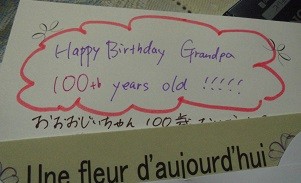 Happy Birthday Grandpa
100th years old !!!!!
おおおじいちゃん 100歳
Une fleur d'aujourd'hui